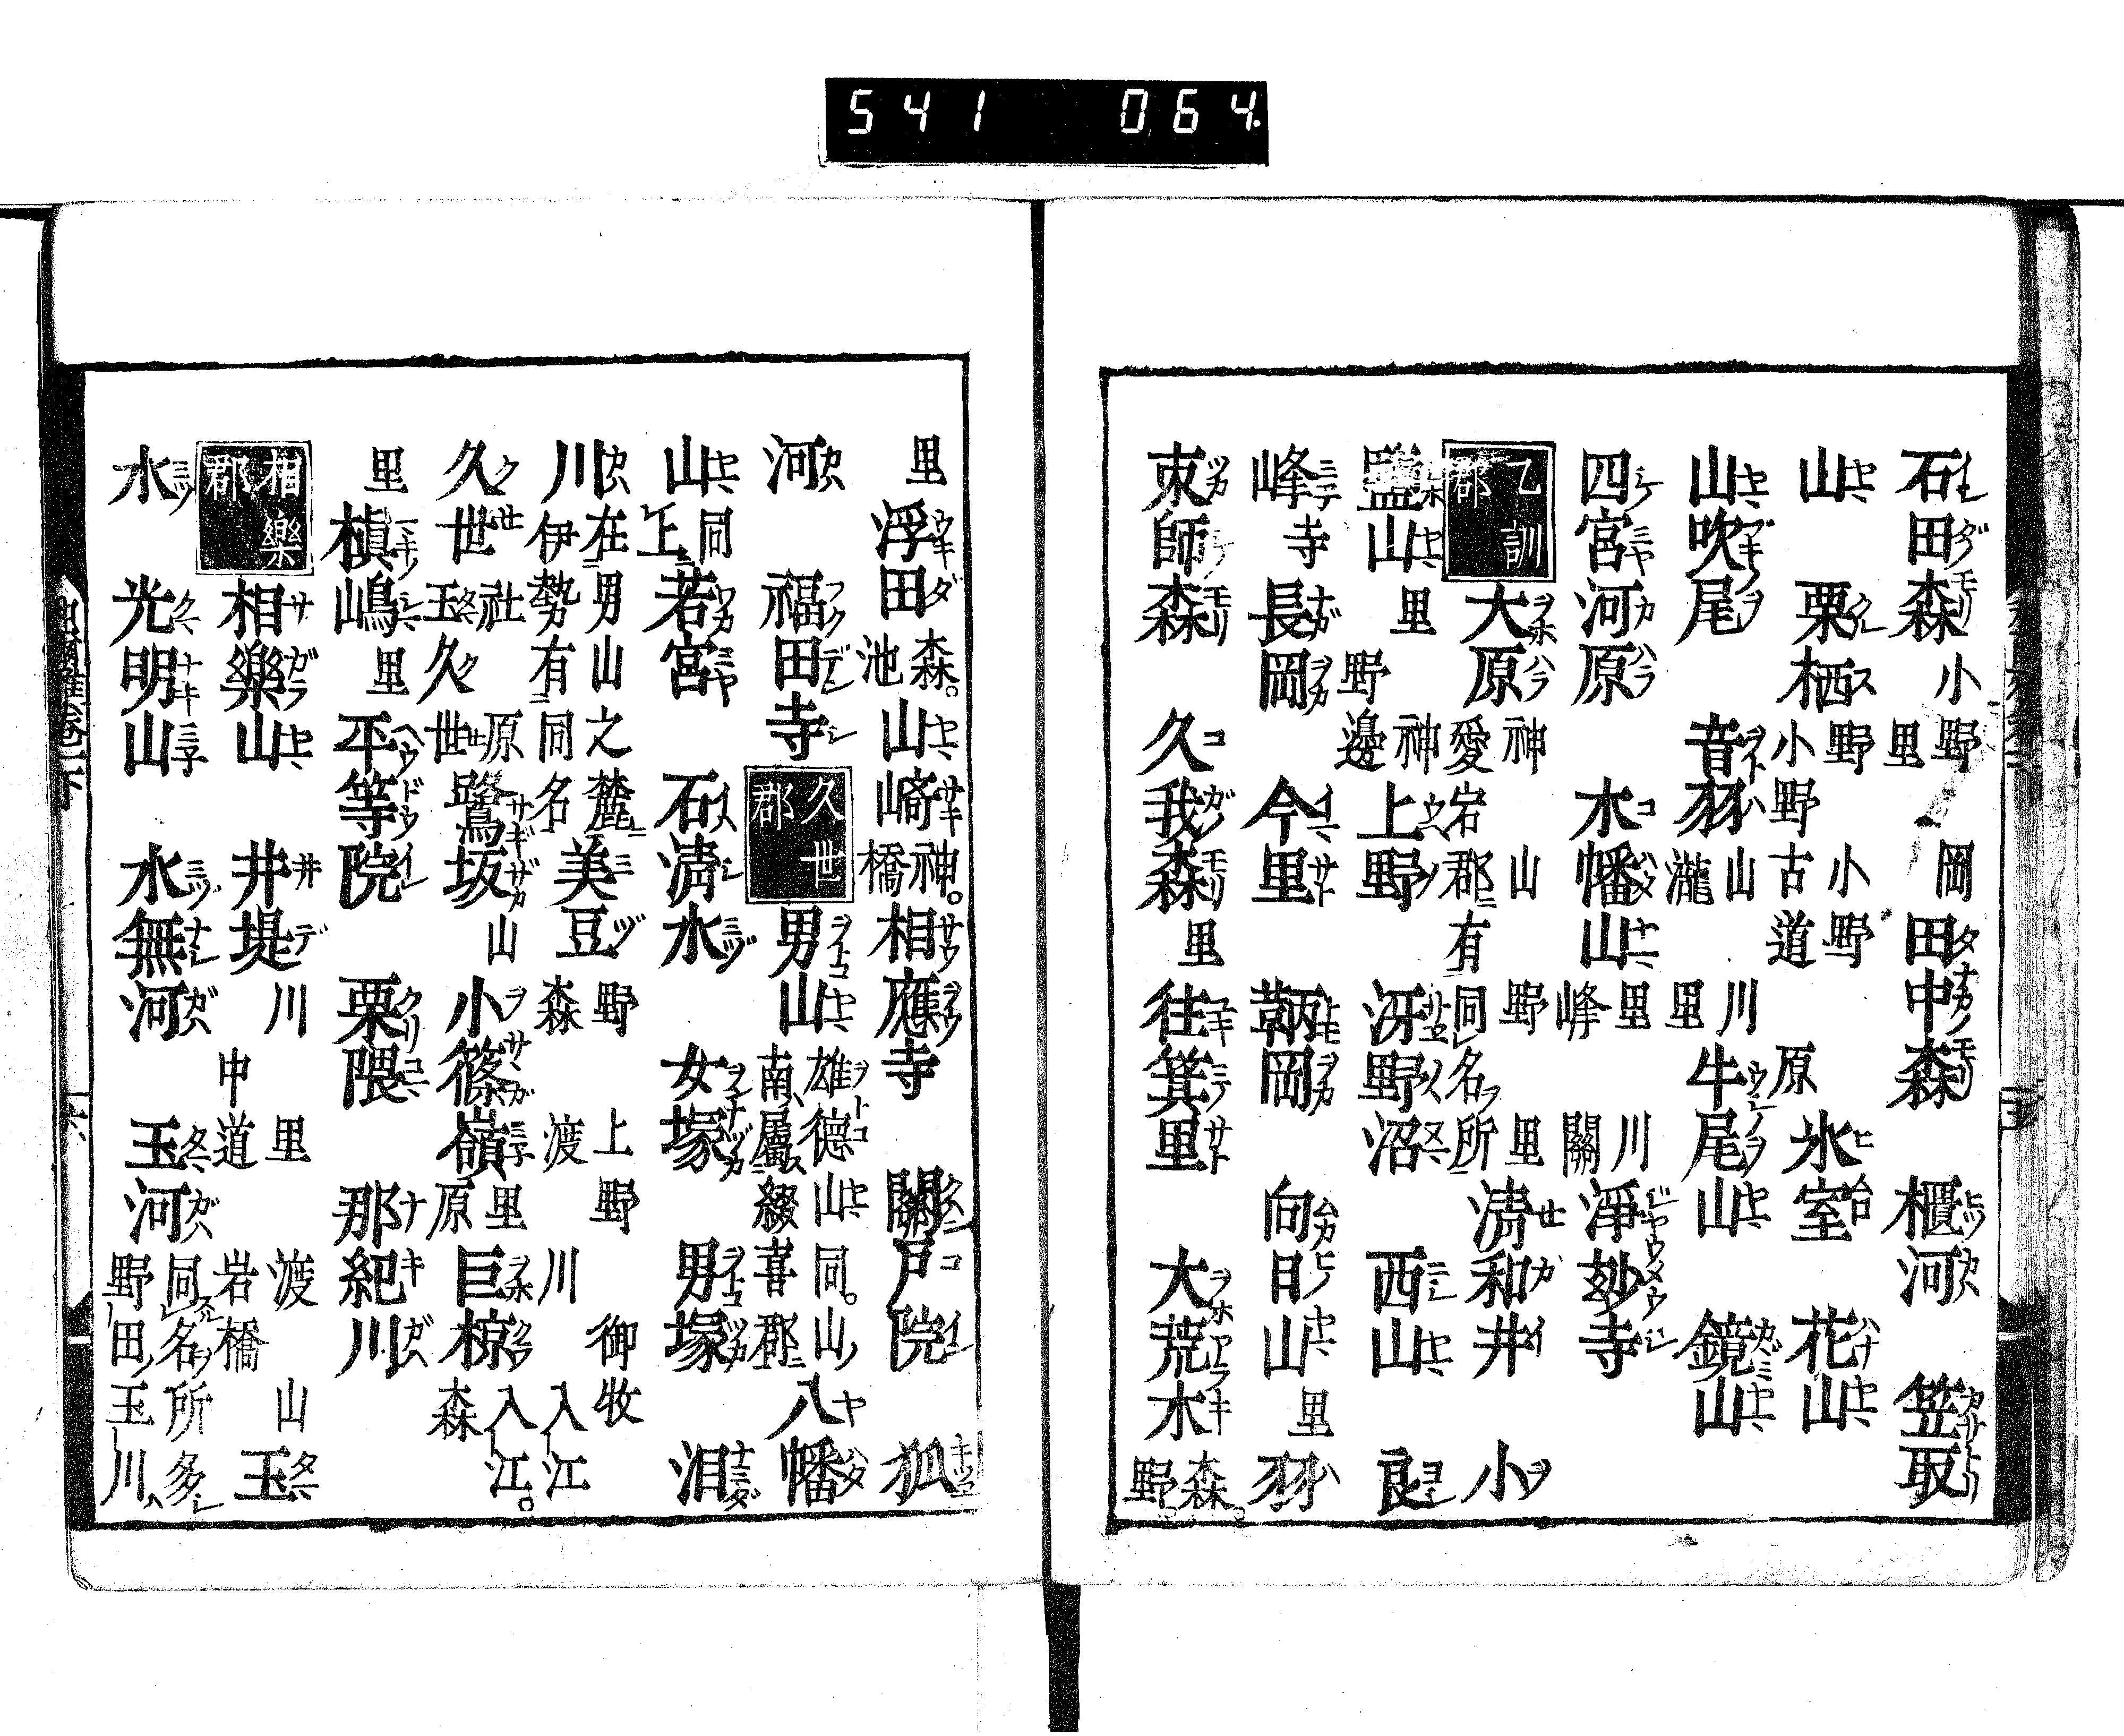 541 064
石田森 小野里 岡 田中森 櫃河 笠取
山 栗栖 小野 小野 小野 古道 原 氷室 花山
山吹尾 音羽 山 瀧 川 里 牛尾山 鏡山
四宮河原 木幡山 里 峰 川 關 淨妙寺
乙訓郡 大原 神 愛宕郡ニ有同名 山 野 里 所 清和井 小
鹽山 里 野 神 邊 上野 冴野沼 西山 良
峰 寺 長岡 今里 鞆岡 向日山 里 羽
束師森 久我森 里 往箕里 大荒木 森 野
里 浮田 森 池 山崎 神 橋 相應寺 關戸院 狐
河 福田寺 久世郡 男山 雄德山同 南屬綴喜郡ニ 八幡
山 同上 若宮 石清水 女塚 男塚 泪
川 在男山之麓ニ 伊勢有ニ同名 美豆 野 森 上野 渡 川 御牧 入江
久世 社 玉 久世 原 鷺坂 山 小篠嶺 里 原 巨椋 入江 森
里 槇嶋 里 平等院 栗隈 那紀川
相樂郡 相樂山 井堤 川 中道 里 渡 岩橋 山 玉
水 光明山 水無河 玉河 同名所多シ 野田ノ玉川ハ